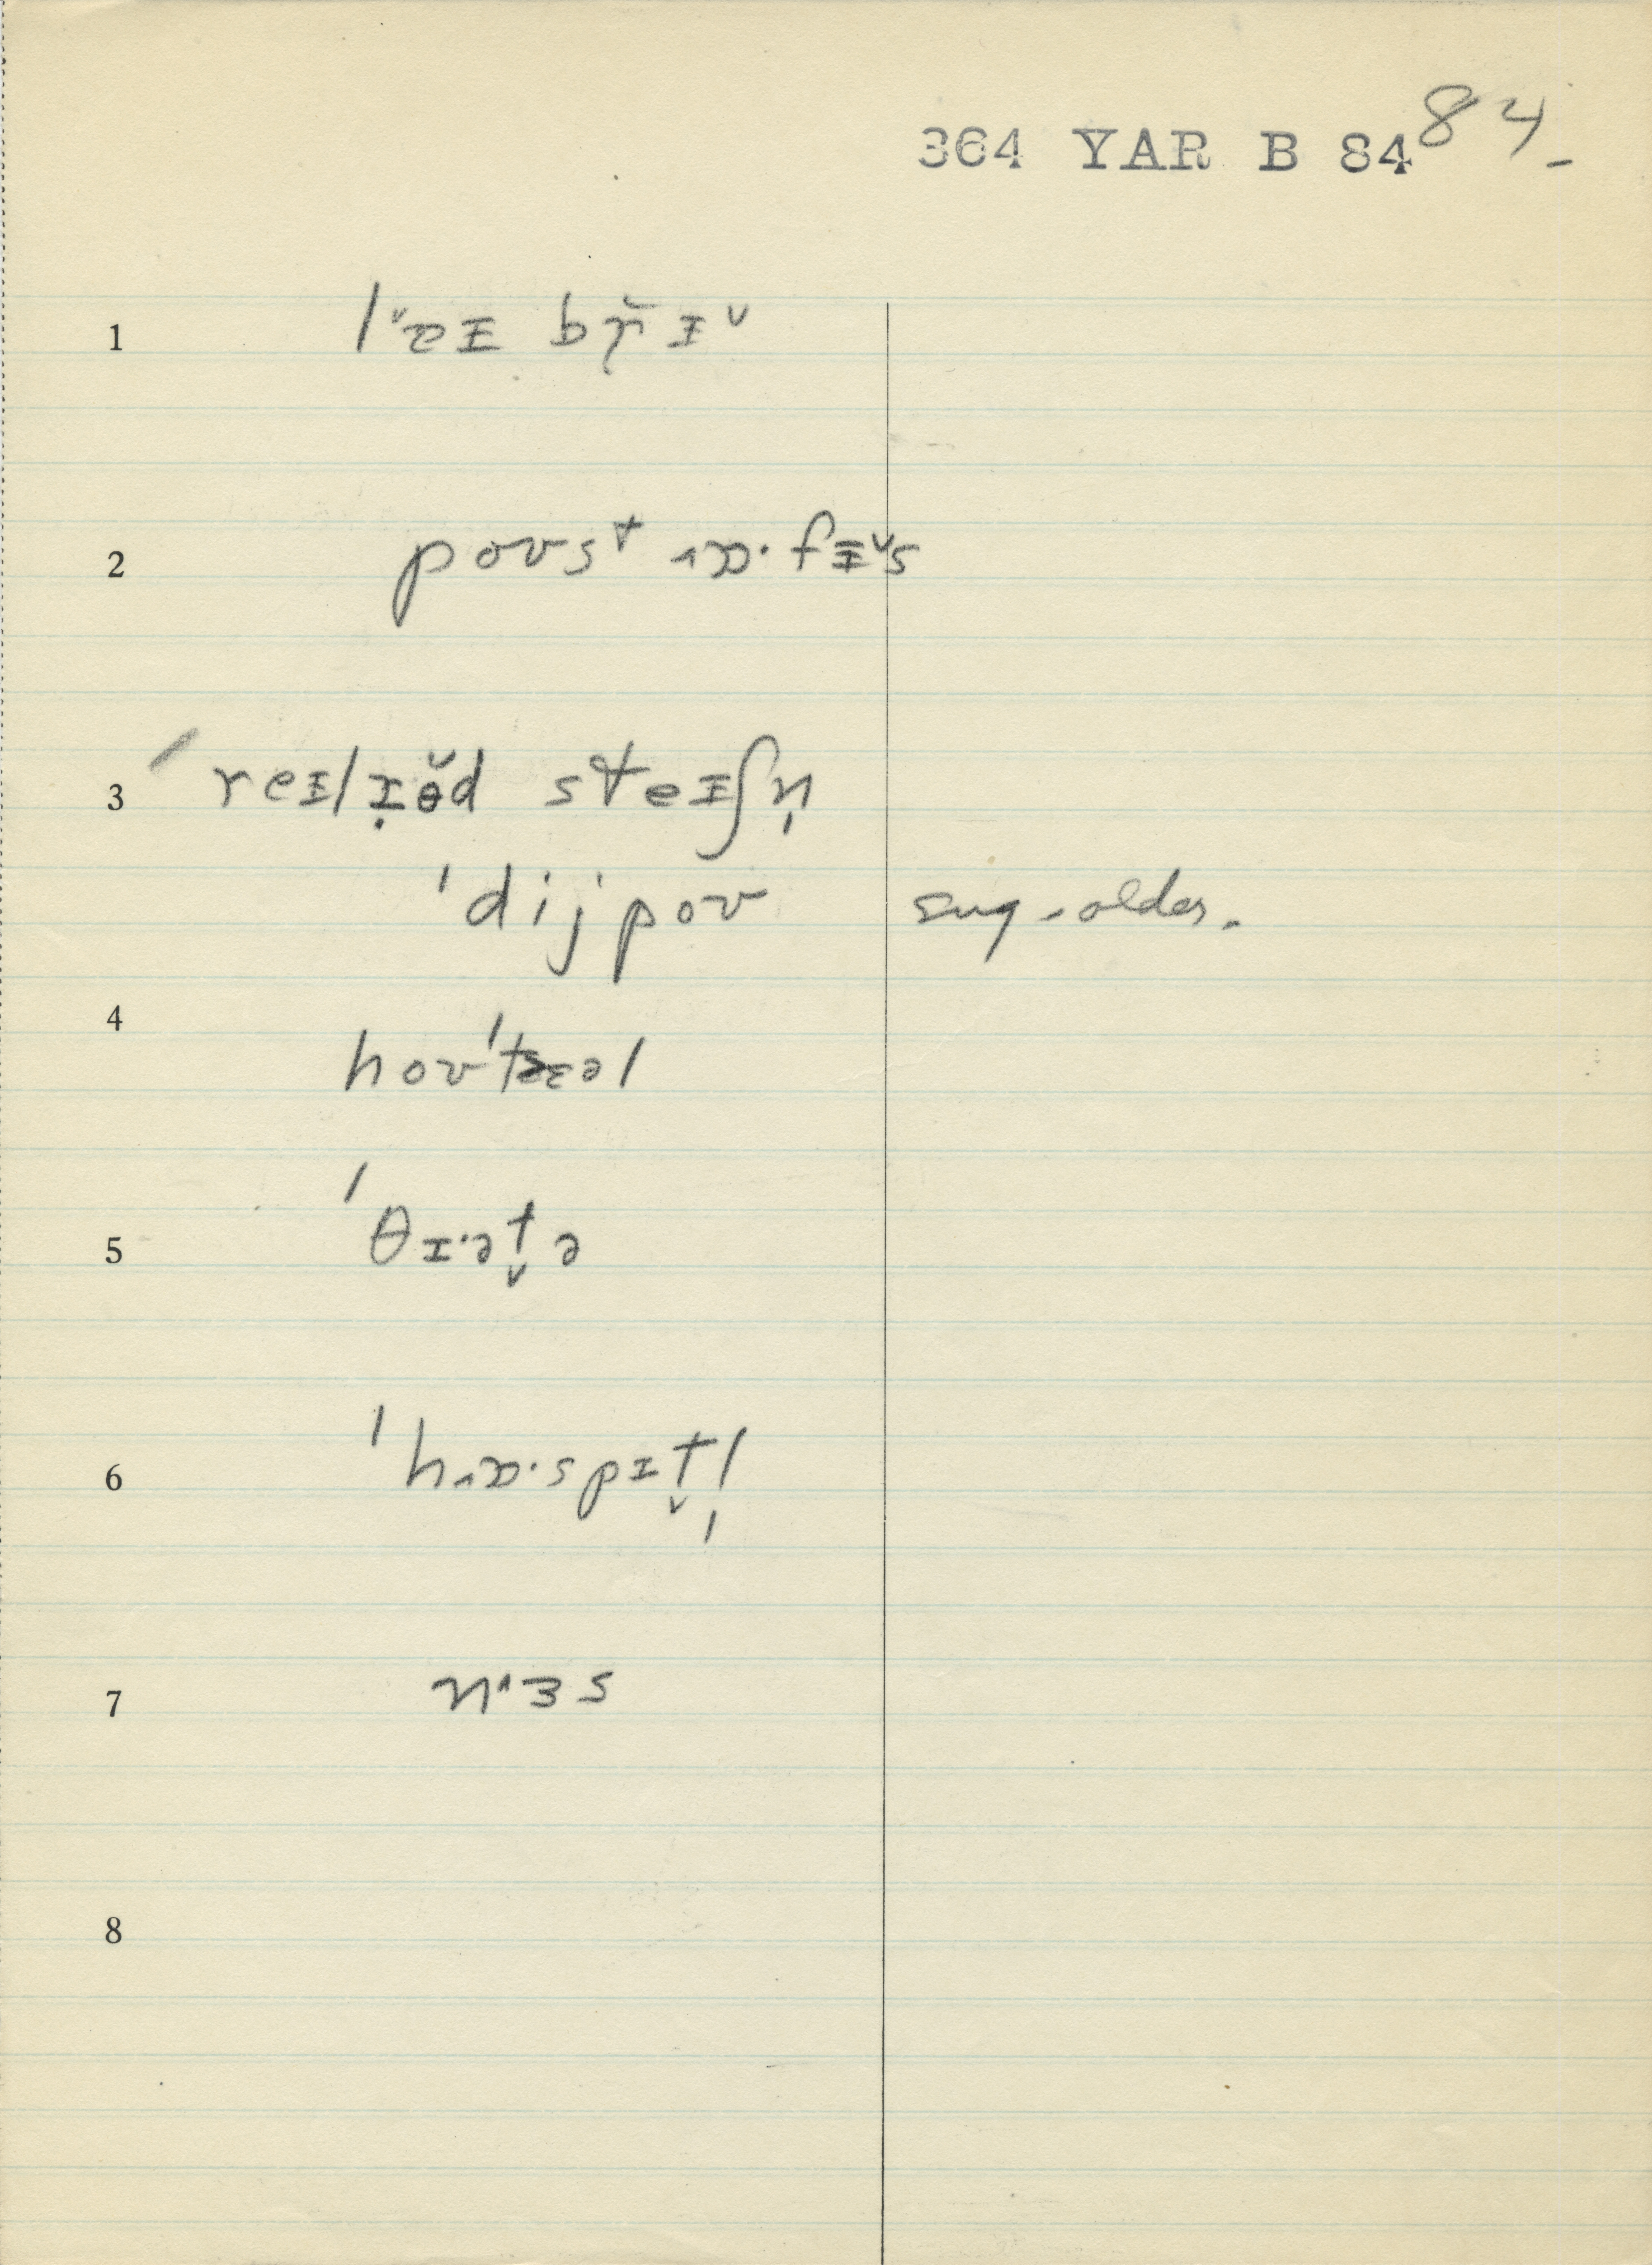 364 YAR B 84 84-
1 lɐᵻ brᵻ
2 poʊst ɒ·fᵻs
3 reᵻlɪɵ̆d steᵻʃn̩
ˈdijpoʊ sug. older.
4 hoʊˈtɛəl
5 ˈθɪ·ət̬ə
6 ˈhɒ·spɪt̬l̩
7 nɜs
8